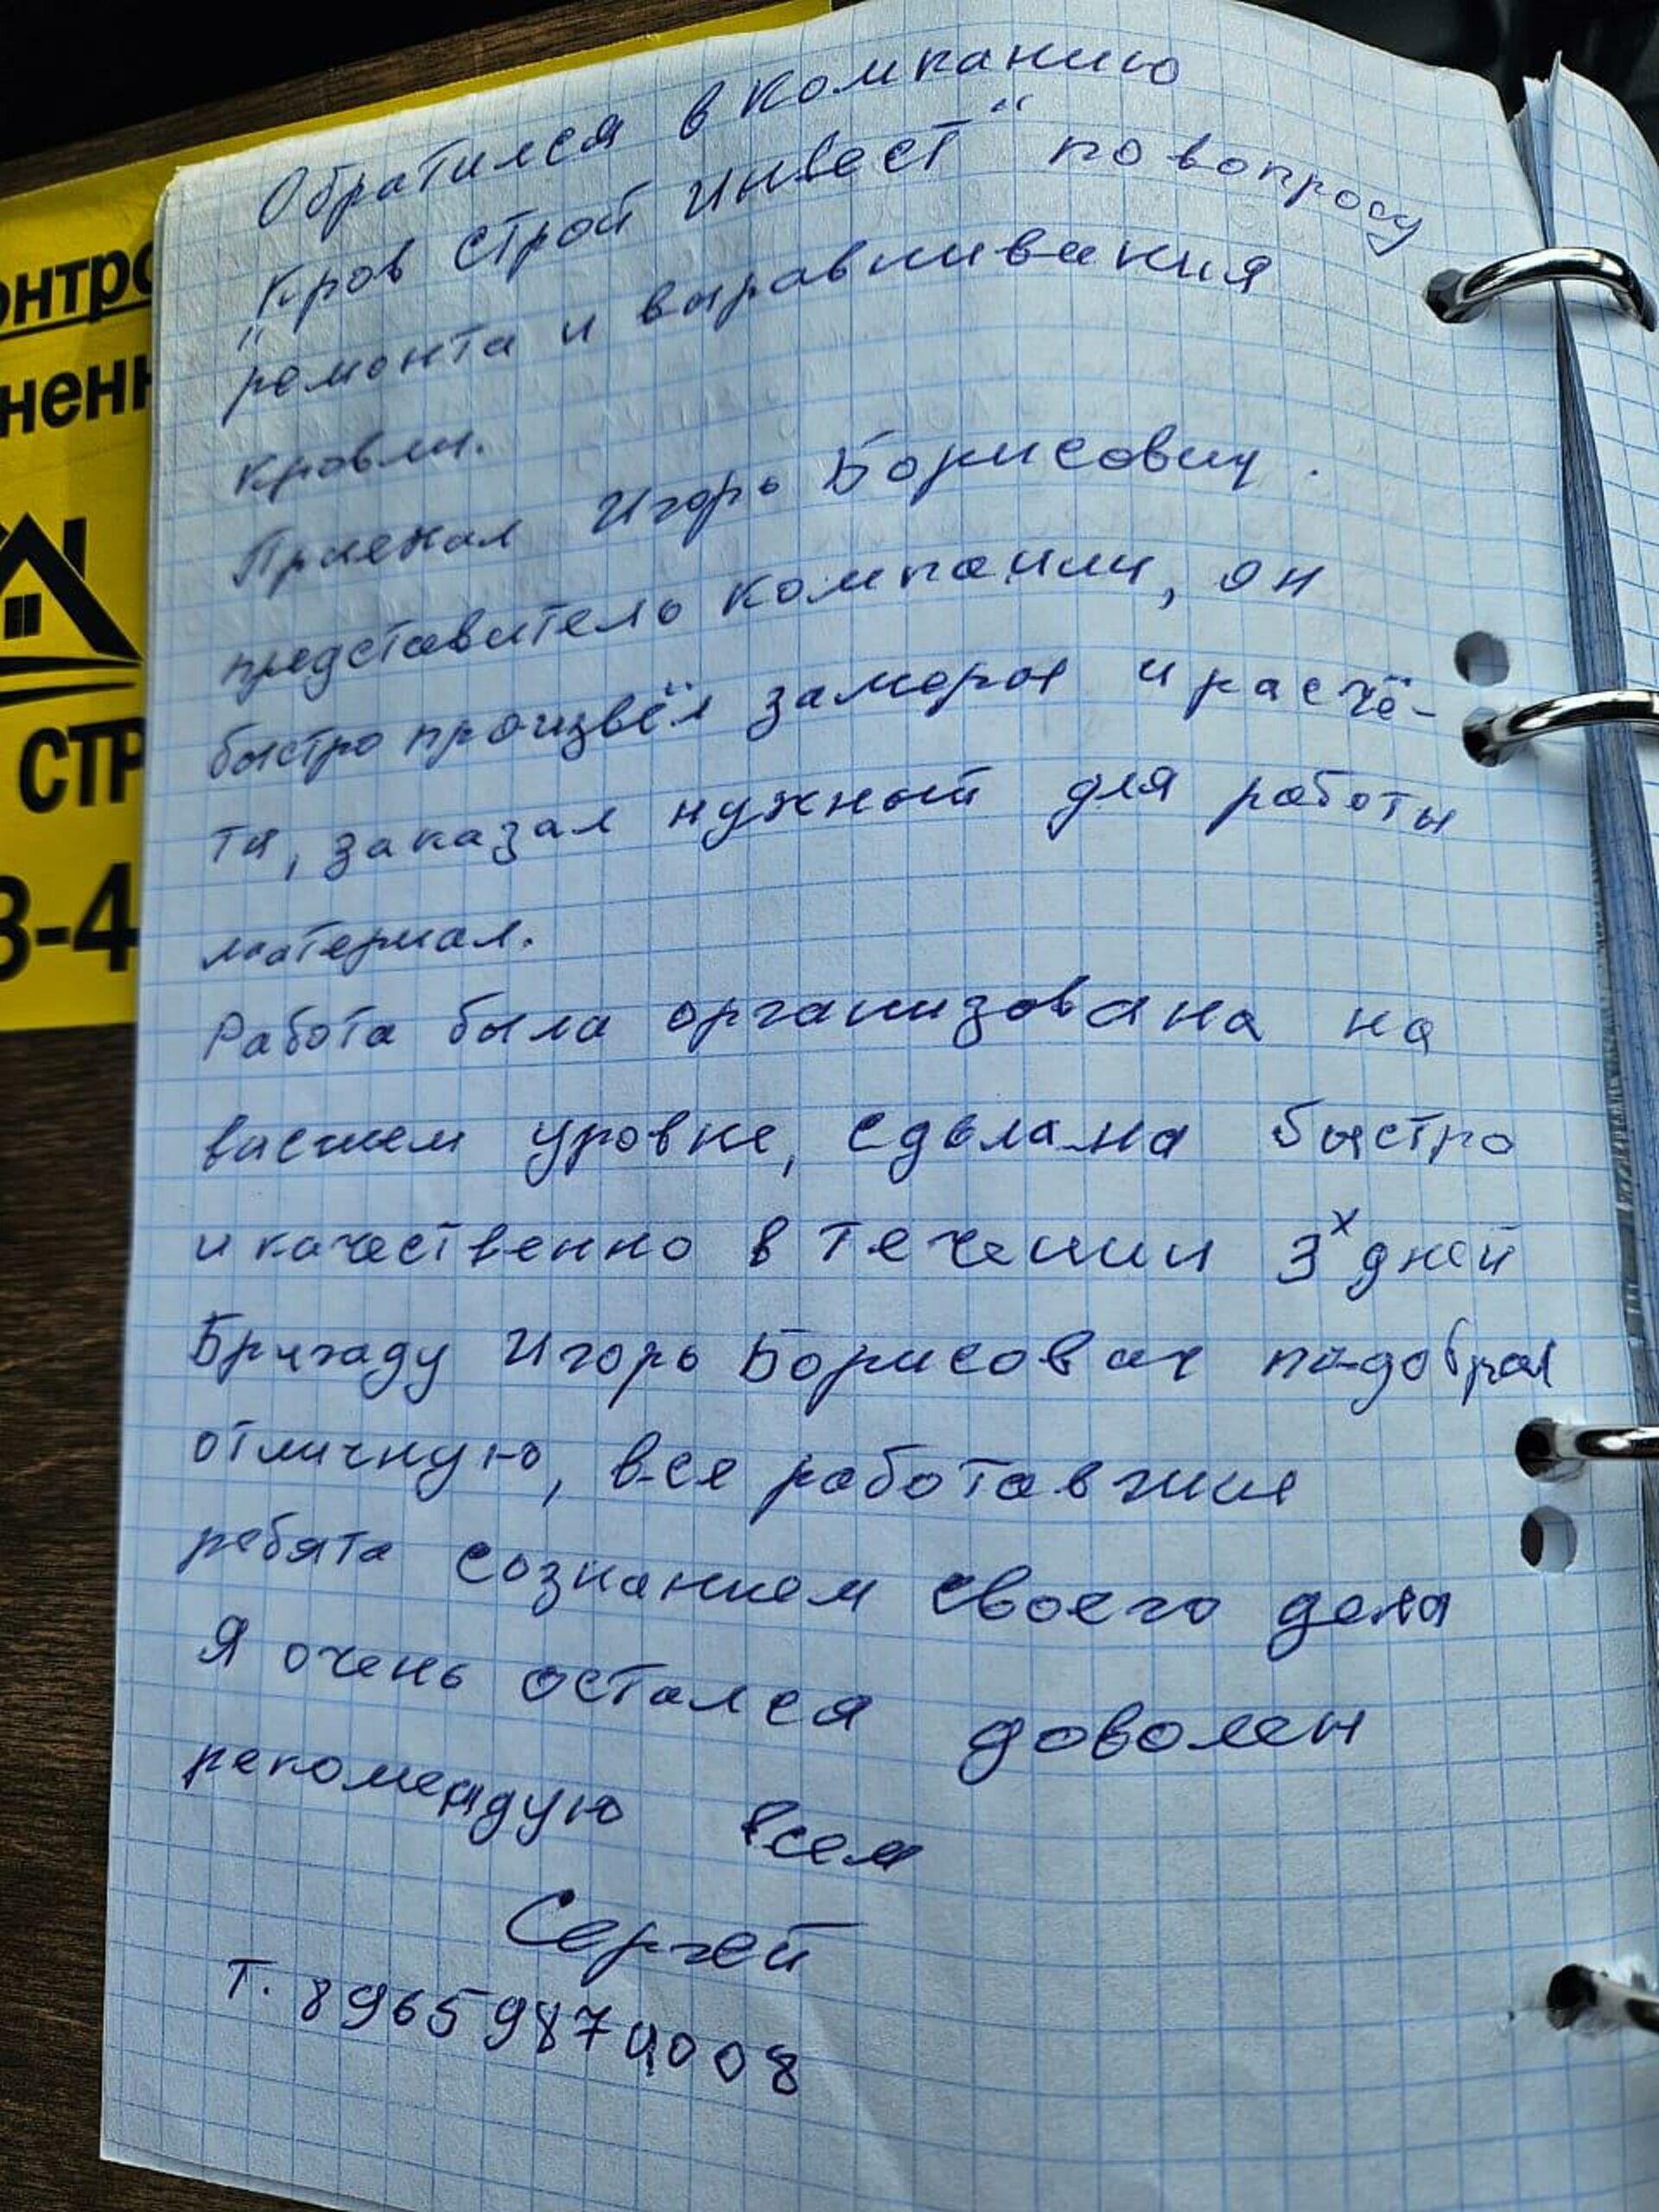 Обратился в компанию
"Кров Строй Инвест" по вопросу
ремонта и выравнивания
кровли.
Приехал Игорь Борисович.
представитель компании, он
быстро произвёл замеры и расчё-
ты, заказал нужный для работы
материал.
Работа была организована на
высшем уровне, сделана быстро
и качественно в течении 3х дней
Бригаду Игорь Борисович подобрал
отличную, все работавшие
ребята со знанием своего дела
Я очень остался доволен
рекомендую всем
Сергей
Т. 89659874008
онтро
нени
СТР
3-4